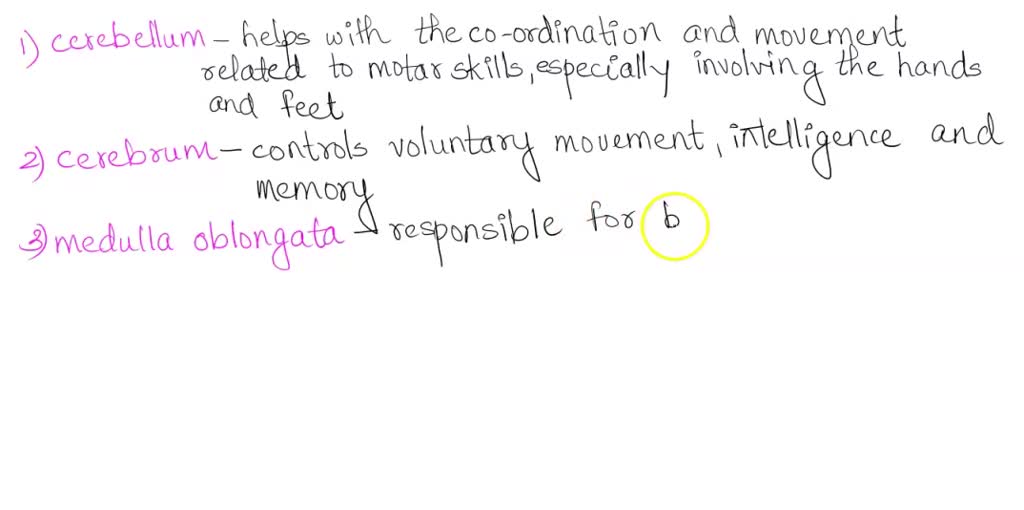 1) cerebellum - helps with the co-ordination and movement
related to motar skills, especially involving the hands
and feet
2) cerebrum - controls voluntary movement, intelligence and
memory
3) medulla oblongata - responsible for b